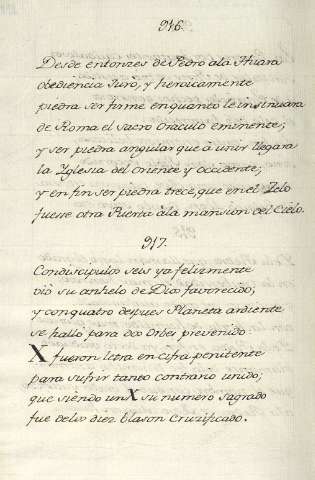 916.
Desde entonzes de Pedro ala Thiara
obediencia Jurò, y heroicamente
piedra ser firme en quanto le insinuara
de Roma el sacro oraculo eminente;
y ser piedra angular que à unir llegara
la Yglesia del oriente y occidente;
y en fin ser piedra treze, que en el Zelo
fuesse otra Puerta àla mansion del Cielo.
917.
Condiscipulos seis ya felizmente
viò su anhelo de Dios favorecido;
y con quatro despues Planeta ardiente
se hallò para dos Orbes prevenido
X fueron letra en cifra penitente
para sufrir tanto contrario unido;
que siendo un X su numero sagrado
fue delos diez blason Cruzificado.